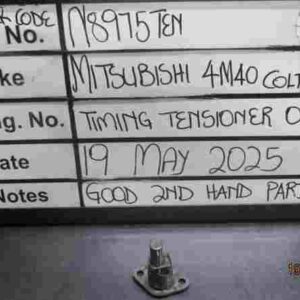 CODE
No. N8975TEN
ke MITSUBISHI 4M40 COLT
g. No. TIMING TENSIONER O
ate 19 MAY 2025
Notes GOOD 2ND HAND PAR